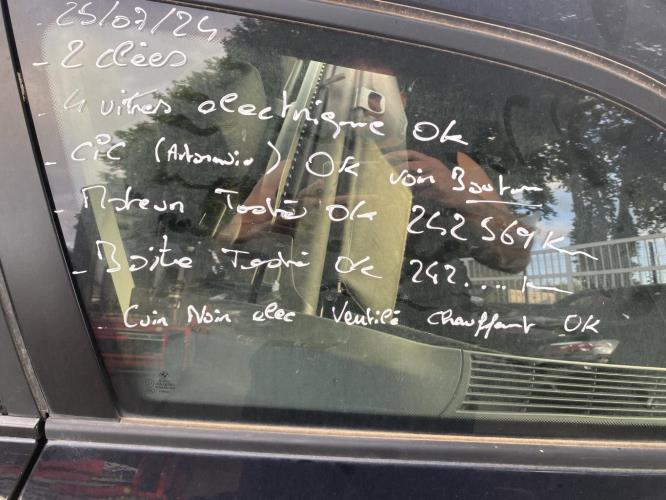 25/07/24
- 2 clées
- 4 vitres electrique ok
- CiC (Autoradio) OK voir Bastien
- Moteur Testé ok 242 569 Km
- Boite Testé ok 242.... km
- Cuir Noir elec Ventilé chauffant OK